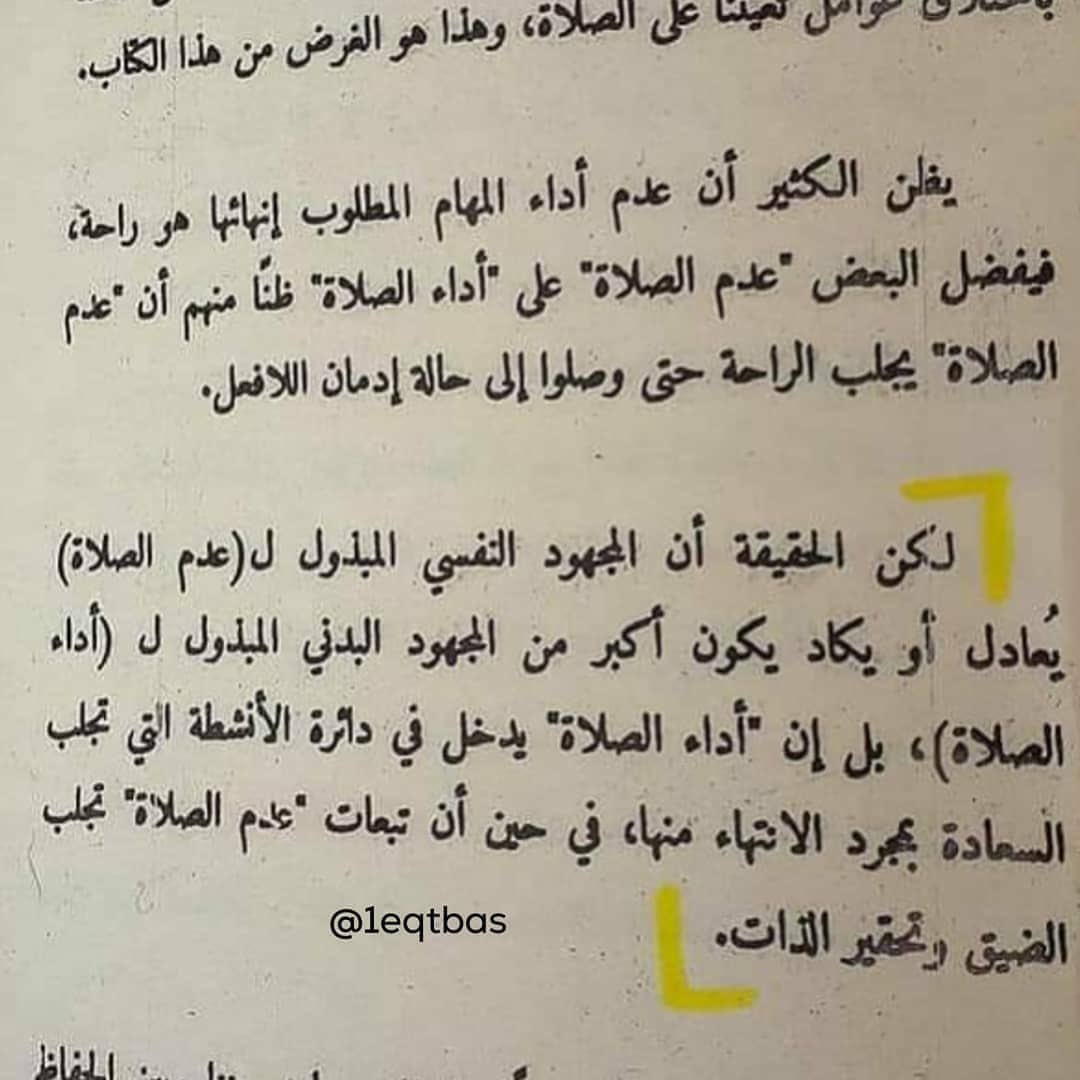 على الصلاة، وهذا هو الغرض من هذا الكتاب.
يظن الكثير أن عدم أداء المهام المطلوب إنهائها هو راحة،
فيفضل البعض "عدم الصلاة" على "أداء الصلاة" ظنًا منهم أن "عدم
الصلاة" يجلب الراحة حتى وصلوا إلى حالة إدمان اللافعل.
لكن الحقيقة أن المجهود النفسي المبذول ل(عدم الصلاة)
يُعادل أو يكاد يكون أكبر من المجهود البدني المبذول ل (أداء
الصلاة)، بل إن "أداء الصلاة" يدخل في دائرة الأنشطة التي تجلب
السعادة بمجرد الانتهاء منها، في حين أن تبعات "عدم الصلاة" تجلب
الضيق وتحقير الذات.
@1eqtbas
الحفاظ